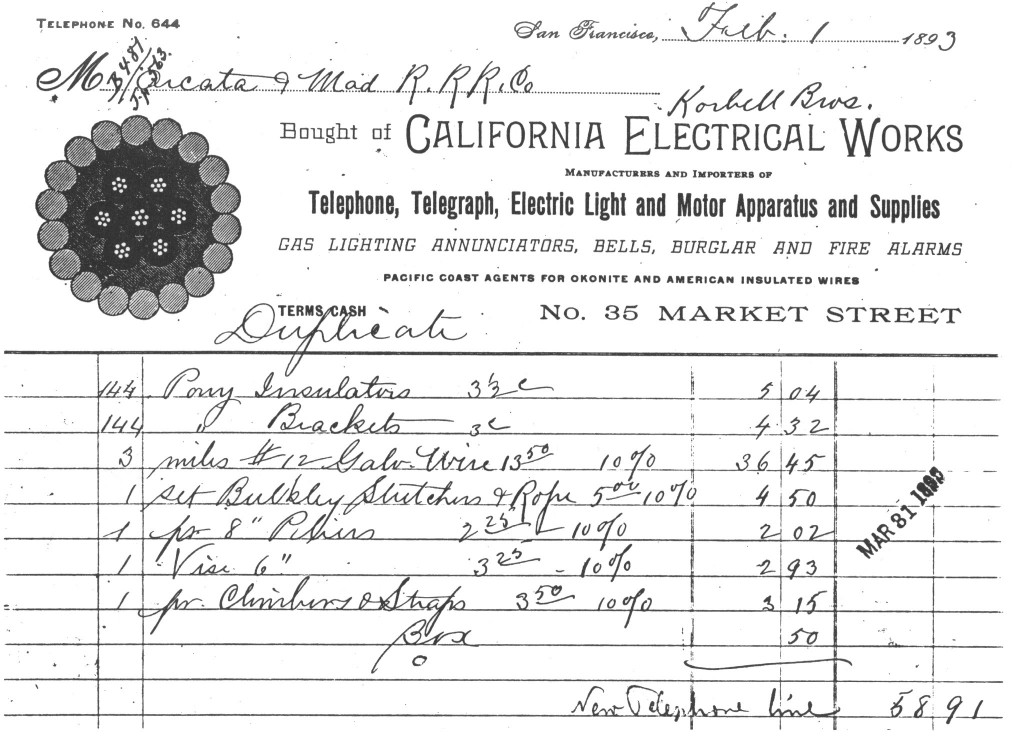 TELEPHONE NO. 644
San Francisco, Feb. 1 1893
M Arcata & Mad R. R R. Co
B 487
Korbell Bros.
Bought of CALIFORNIA ELECTRICAL WORKS
MANUFACTURERS AND IMPORTERS OF
Telephone, Telegraph, Electric Light and Motor Apparatus and Supplies
GAS LIGHTING ANNUNCIATORS, BELLS, BURGLAR AND FIRE ALARMS
PACIFIC COAST AGENTS FOR OKONITE AND AMERICAN INSULATED WIRES
TERMS CASH
No. 35 MARKET STREET
Duplicate
144 Pony Insulators 3½ c 5 04
144 " Brackets 3c 4 32
3 miles #12 Galv. Wire 13 50 10% 36 45
1 set Bulkley Stretchers & Rope 5 00 10% 4 50
1 pr 8" Pliers 2 25 - 10% 2 02
1 Vise 6" 3 25 - 10% 2 93
1 pr. Climbers & Straps 3 50 10% 3 15
Box 50
MAR 31 1893
New Telephone line 58 91